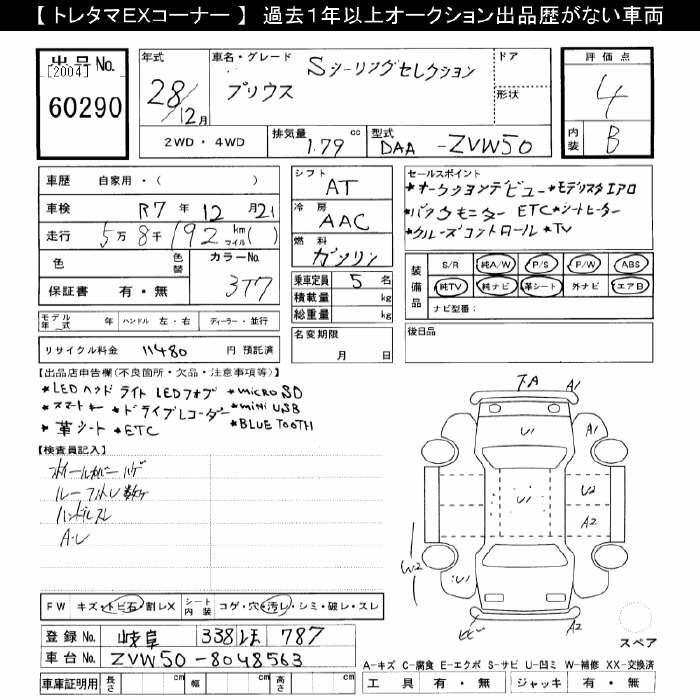 【トレタマEXコーナー】 過去１年以上オークション出品歴がない車両
出品No. [2004] 60290
年式 28/12月
車名・グレード Sツーリングセレクション プリウス
ドア
形状
評価点 4
内装 B
2WD・4WD 排気量 1.79 cc 型式 DAA -ZVW50
車歴 自家用・( )
車検 R7年12月21
走行 5万8千192 km マイル( )
色 色替 カラーNo. 3T7
保証書 有・無
シフト AT
冷房 AAC
燃料 ガソリン
乗車定員 5名
積載量 kg
総重量 kg
セールスポイント
*オークションデビュー*モデリスタエアロ
*バックモニター ETC*シートヒーター
*クルーズコントロール*TV
装備品 S/R 純A/W P/S P/W ABS
純TV 純ナビ 革シート 外ナビ エアB
ナビ型番:
モデル年式 年 ハンドル 左・右 ディーラー・並行
名変期限 月 日
後日品
リサイクル料金 11480 円 預託済
【出品店申告欄(不良箇所・欠品・注意事項等)】
*LEDヘッドライト LEDフォグ *micro SD
*スマートキー *ドライブレコーダー *mini USB
*革シート *ETC *BLUE TOOTH
【検査員記入】
ホイールカバーハゲ
ハンドルスレ
A-U
下A A1
U1 A1
U1 U2
A2
W2
U1
A2
FW キズ・トビ石・割レX シート内装 コゲ・穴・汚レ・シミ・破レ・スレ
登録No. 岐阜 338 ほ 787
車台No. ZVW50-8048563
スペア
A-キズ C-腐食 E-エクボ S-サビ U-凹ミ W-補修 XX-交換済
車庫証明用 長さ cm 幅 cm 高さ cm
工具 有・無 ジャッキ 有・無